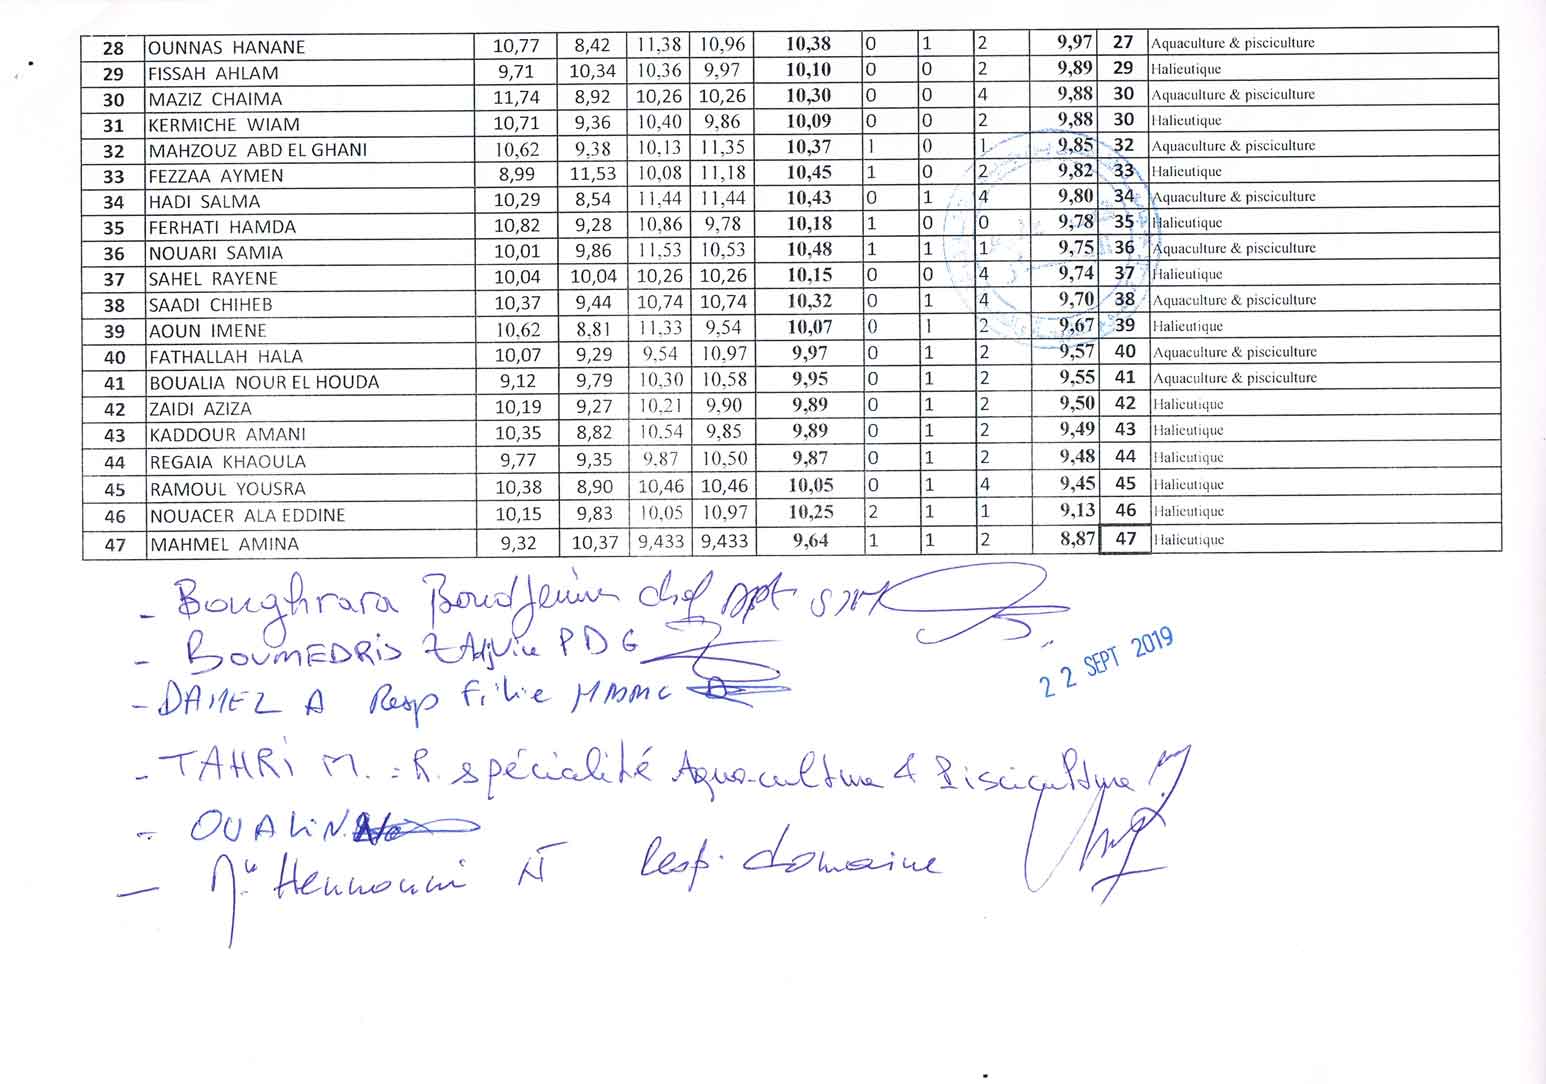 28 OUNNAS HANANE 10,77 8,42 11,38 10,96 10,38 0 1 2 9,97 27 Aquaculture & pisciculture
29 FISSAH AHLAM 9,71 10,34 10,36 9,97 10,10 0 0 2 9,89 29 Halieutique
30 MAZIZ CHAIMA 11,74 8,92 10,26 10,26 10,30 0 0 4 9,88 30 Aquaculture & pisciculture
31 KERMICHE WIAM 10,71 9,36 10,40 9,86 10,09 0 0 2 9,88 30 Halieutique
32 MAHZOUZ ABD EL GHANI 10,62 9,38 10,13 11,35 10,37 1 0 1 9,85 32 Aquaculture & pisciculture
33 FEZZAA AYMEN 8,99 11,53 10,08 11,18 10,45 1 0 2 9,82 33 Halieutique
34 HADI SALMA 10,29 8,54 11,44 11,44 10,43 0 1 4 9,80 34 Aquaculture & pisciculture
35 FERHATI HAMDA 10,82 9,28 10,86 9,78 10,18 1 0 0 9,78 35 Halieutique
36 NOUARI SAMIA 10,01 9,86 11,53 10,53 10,48 1 1 1 9,75 36 Aquaculture & pisciculture
37 SAHEL RAYENE 10,04 10,04 10,26 10,26 10,15 0 0 4 9,74 37 Halieutique
38 SAADI CHIHEB 10,37 9,44 10,74 10,74 10,32 0 1 4 9,70 38 Aquaculture & pisciculture
39 AOUN IMENE 10,62 8,81 11,33 9,54 10,07 0 1 2 9,67 39 Halieutique
40 FATHALLAH HALA 10,07 9,29 9,54 10,97 9,97 0 1 2 9,57 40 Aquaculture & pisciculture
41 BOUALIA NOUR EL HOUDA 9,12 9,79 10,30 10,58 9,95 0 1 2 9,55 41 Aquaculture & pisciculture
42 ZAIDI AZIZA 10,19 9,27 10,21 9,90 9,89 0 1 2 9,50 42 Halieutique
43 KADDOUR AMANI 10,35 8,82 10,54 9,85 9,89 0 1 2 9,49 43 Halieutique
44 REGAIA KHAOULA 9,77 9,35 9,87 10,50 9,87 0 1 2 9,48 44 Halieutique
45 RAMOUL YOUSRA 10,38 8,90 10,46 10,46 10,05 0 1 4 9,45 45 Halieutique
46 NOUACER ALA EDDINE 10,15 9,83 10,05 10,97 10,25 2 1 1 9,13 46 Halieutique
47 MAHMEL AMINA 9,32 10,37 9,433 9,433 9,64 1 1 2 8,87 47 Halieutique
- Boughrara Boudjema chef dpt
- BOUMEDRIS Z Adjointe PDG
22 SEPT 2019
- DAMEZ A Resp
- TAHRi M. : R. spécialité Aquaculture & Pisciculture
- OUALi N.
- Hennouni N Resp. domaine